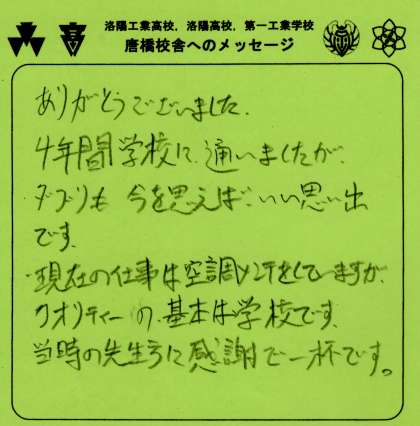 洛陽工業高校，洛陽高校，第一工業学校
唐橋校舎へのメッセージ
ありがとうございました。
4年間学校に、通いましたが、
ダブリも 今を思えば、いい思い出
です。
現在の仕事は空調メンテをしていますが、
クオリティーの、基本は学校です、
当時の先生方に感謝で一杯です。